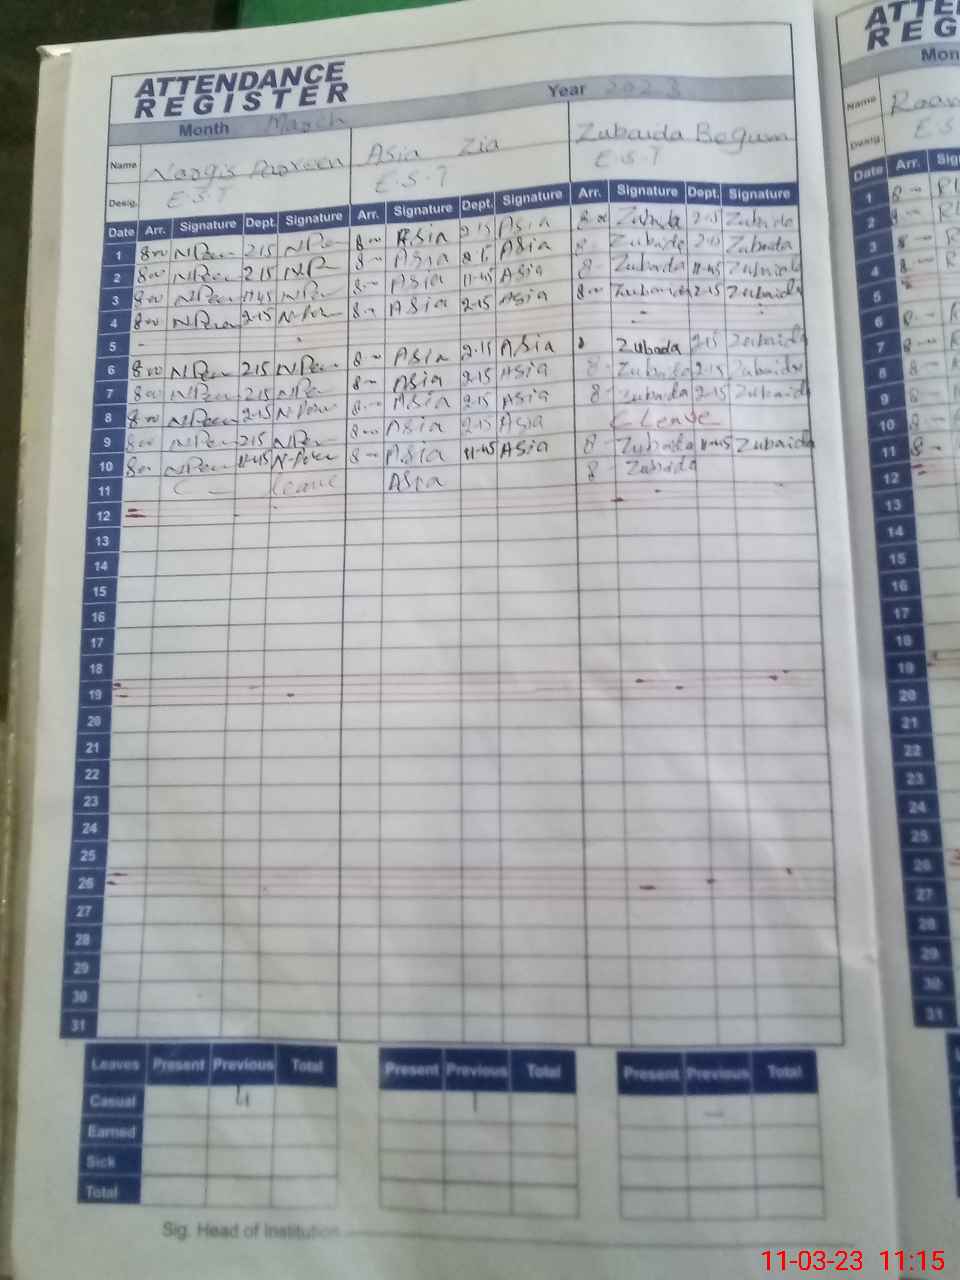 ATTENDANCE
REGISTER
Month March Year 2023
Name Nargis Parveen Asia Zia Zubaida Begum
Desig. E.S.T E.S.T E.S.T
Date Arr. Signature Dept. Signature Arr. Signature Dept. Signature Arr. Signature Dept. Signature
1 8:00 215 8- Asia 215 Asia 8:00 Zubaida 215 Zubaida
2 8:00 215 8- Asia Asia 8 Zubaida Zubaida
3 8:00 1145 8- Asia 11-45 Asia 8- Zubaida 11-45 Zubaida
4 8:00 2-15 8- Asia 2-15 Asia 8:00 2-15 Zubaida
5
6 8:00 215 8- Asia 2-15 Asia Zubada 215 Zubaida
7 8:00 215 8- Asia 2-15 Asia 8- Zubaida 2-15 Zubaida
8 8:00 2-15 8- Asia 2-15 Asia 8- Zubaida 2-15 Zubaida
9 8:00 215 8- Asia 2-15 Asia C Leave
10 8:00 11-45 8- Asia 11-45 Asia 8- Zubaida 11-45 Zubaida
11 C - Leave Asia 8- Zubaida
12
13
14
15
16
17
18
19
20
21
22
23
24
25
26
27
28
29
30
31
Leaves Present Previous Total Present Previous Total Present Previous Total
Casual 4 1 -
Earned
Sick
Total
Sig. Head of Institution
ATTE
REG
Mon
Name
Desig. E S
Date Arr. Sig
1 8-
2
3 8-
4 8-
5
6 8-
7 8-
8
9 8
10 8-
11 8-
12
13
14
15
16
17
18
19
20
21
22
23
24
25
26
27
28
29
30
31
11-03-23 11:15